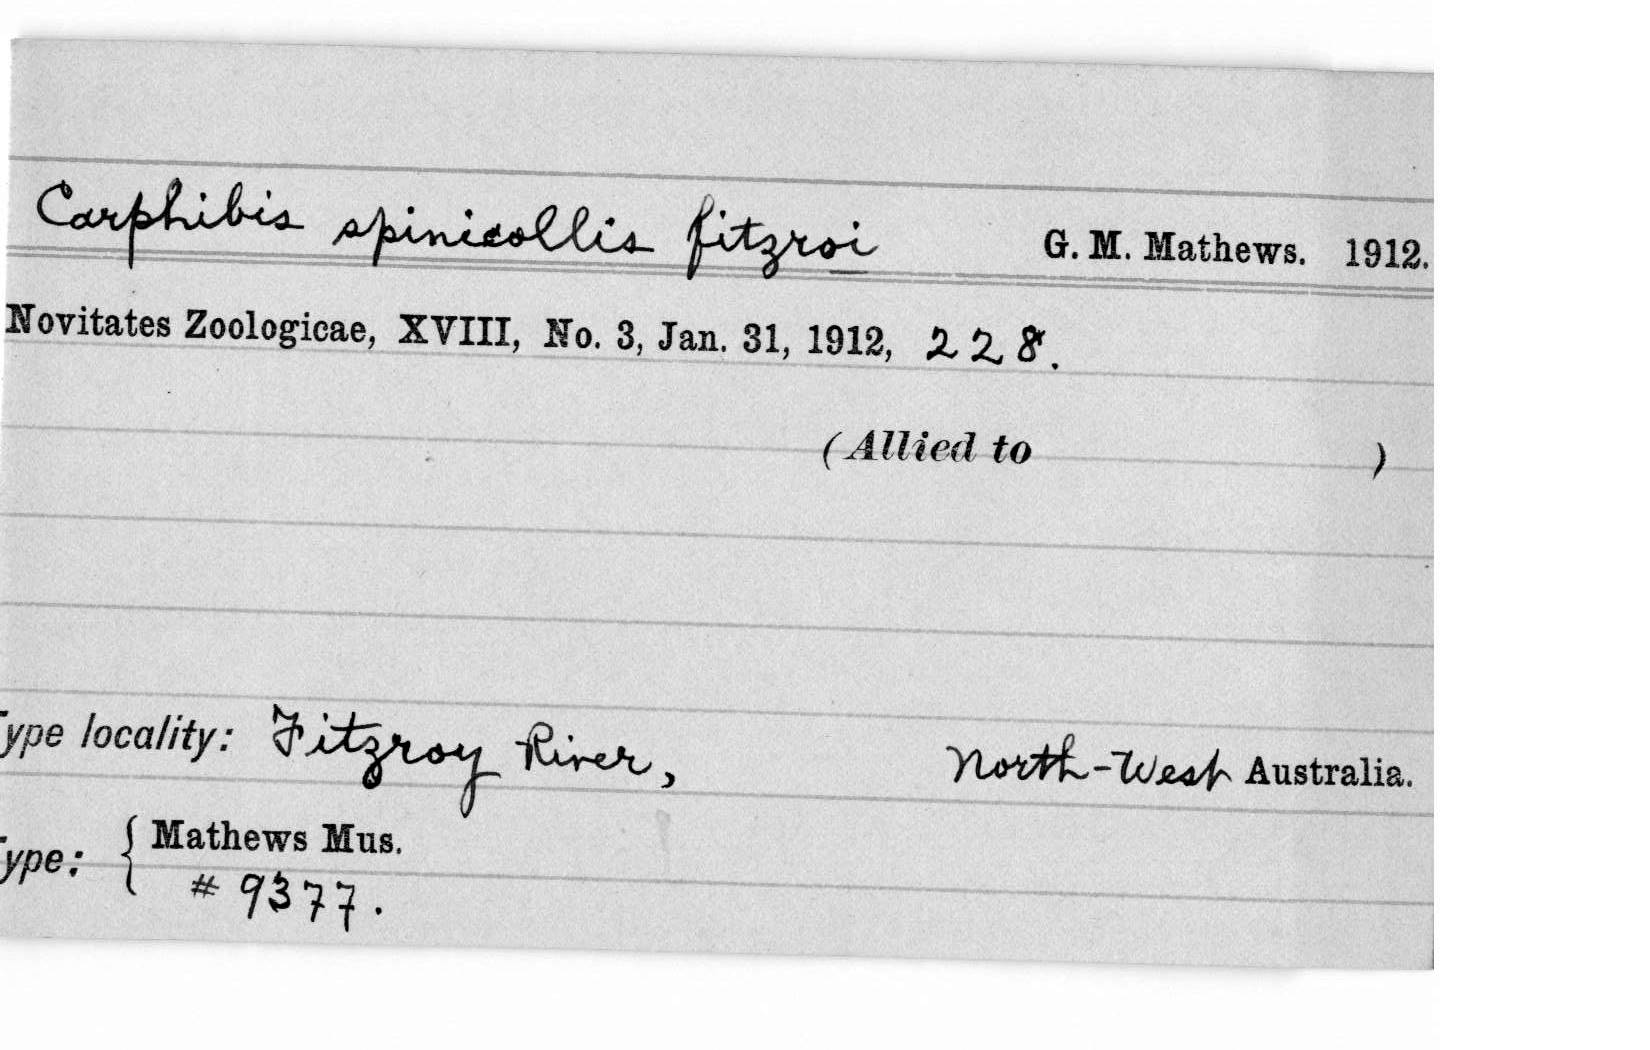 Carphibis spinicollis fitzroi G. M. Mathews. 1912.
Novitates Zoologicae, XVIII, No. 3, Jan. 31, 1912, 228.
(Allied to )
Type locality: Fitzroy River, North-West Australia.
Type: { Mathews Mus.
# 9377.